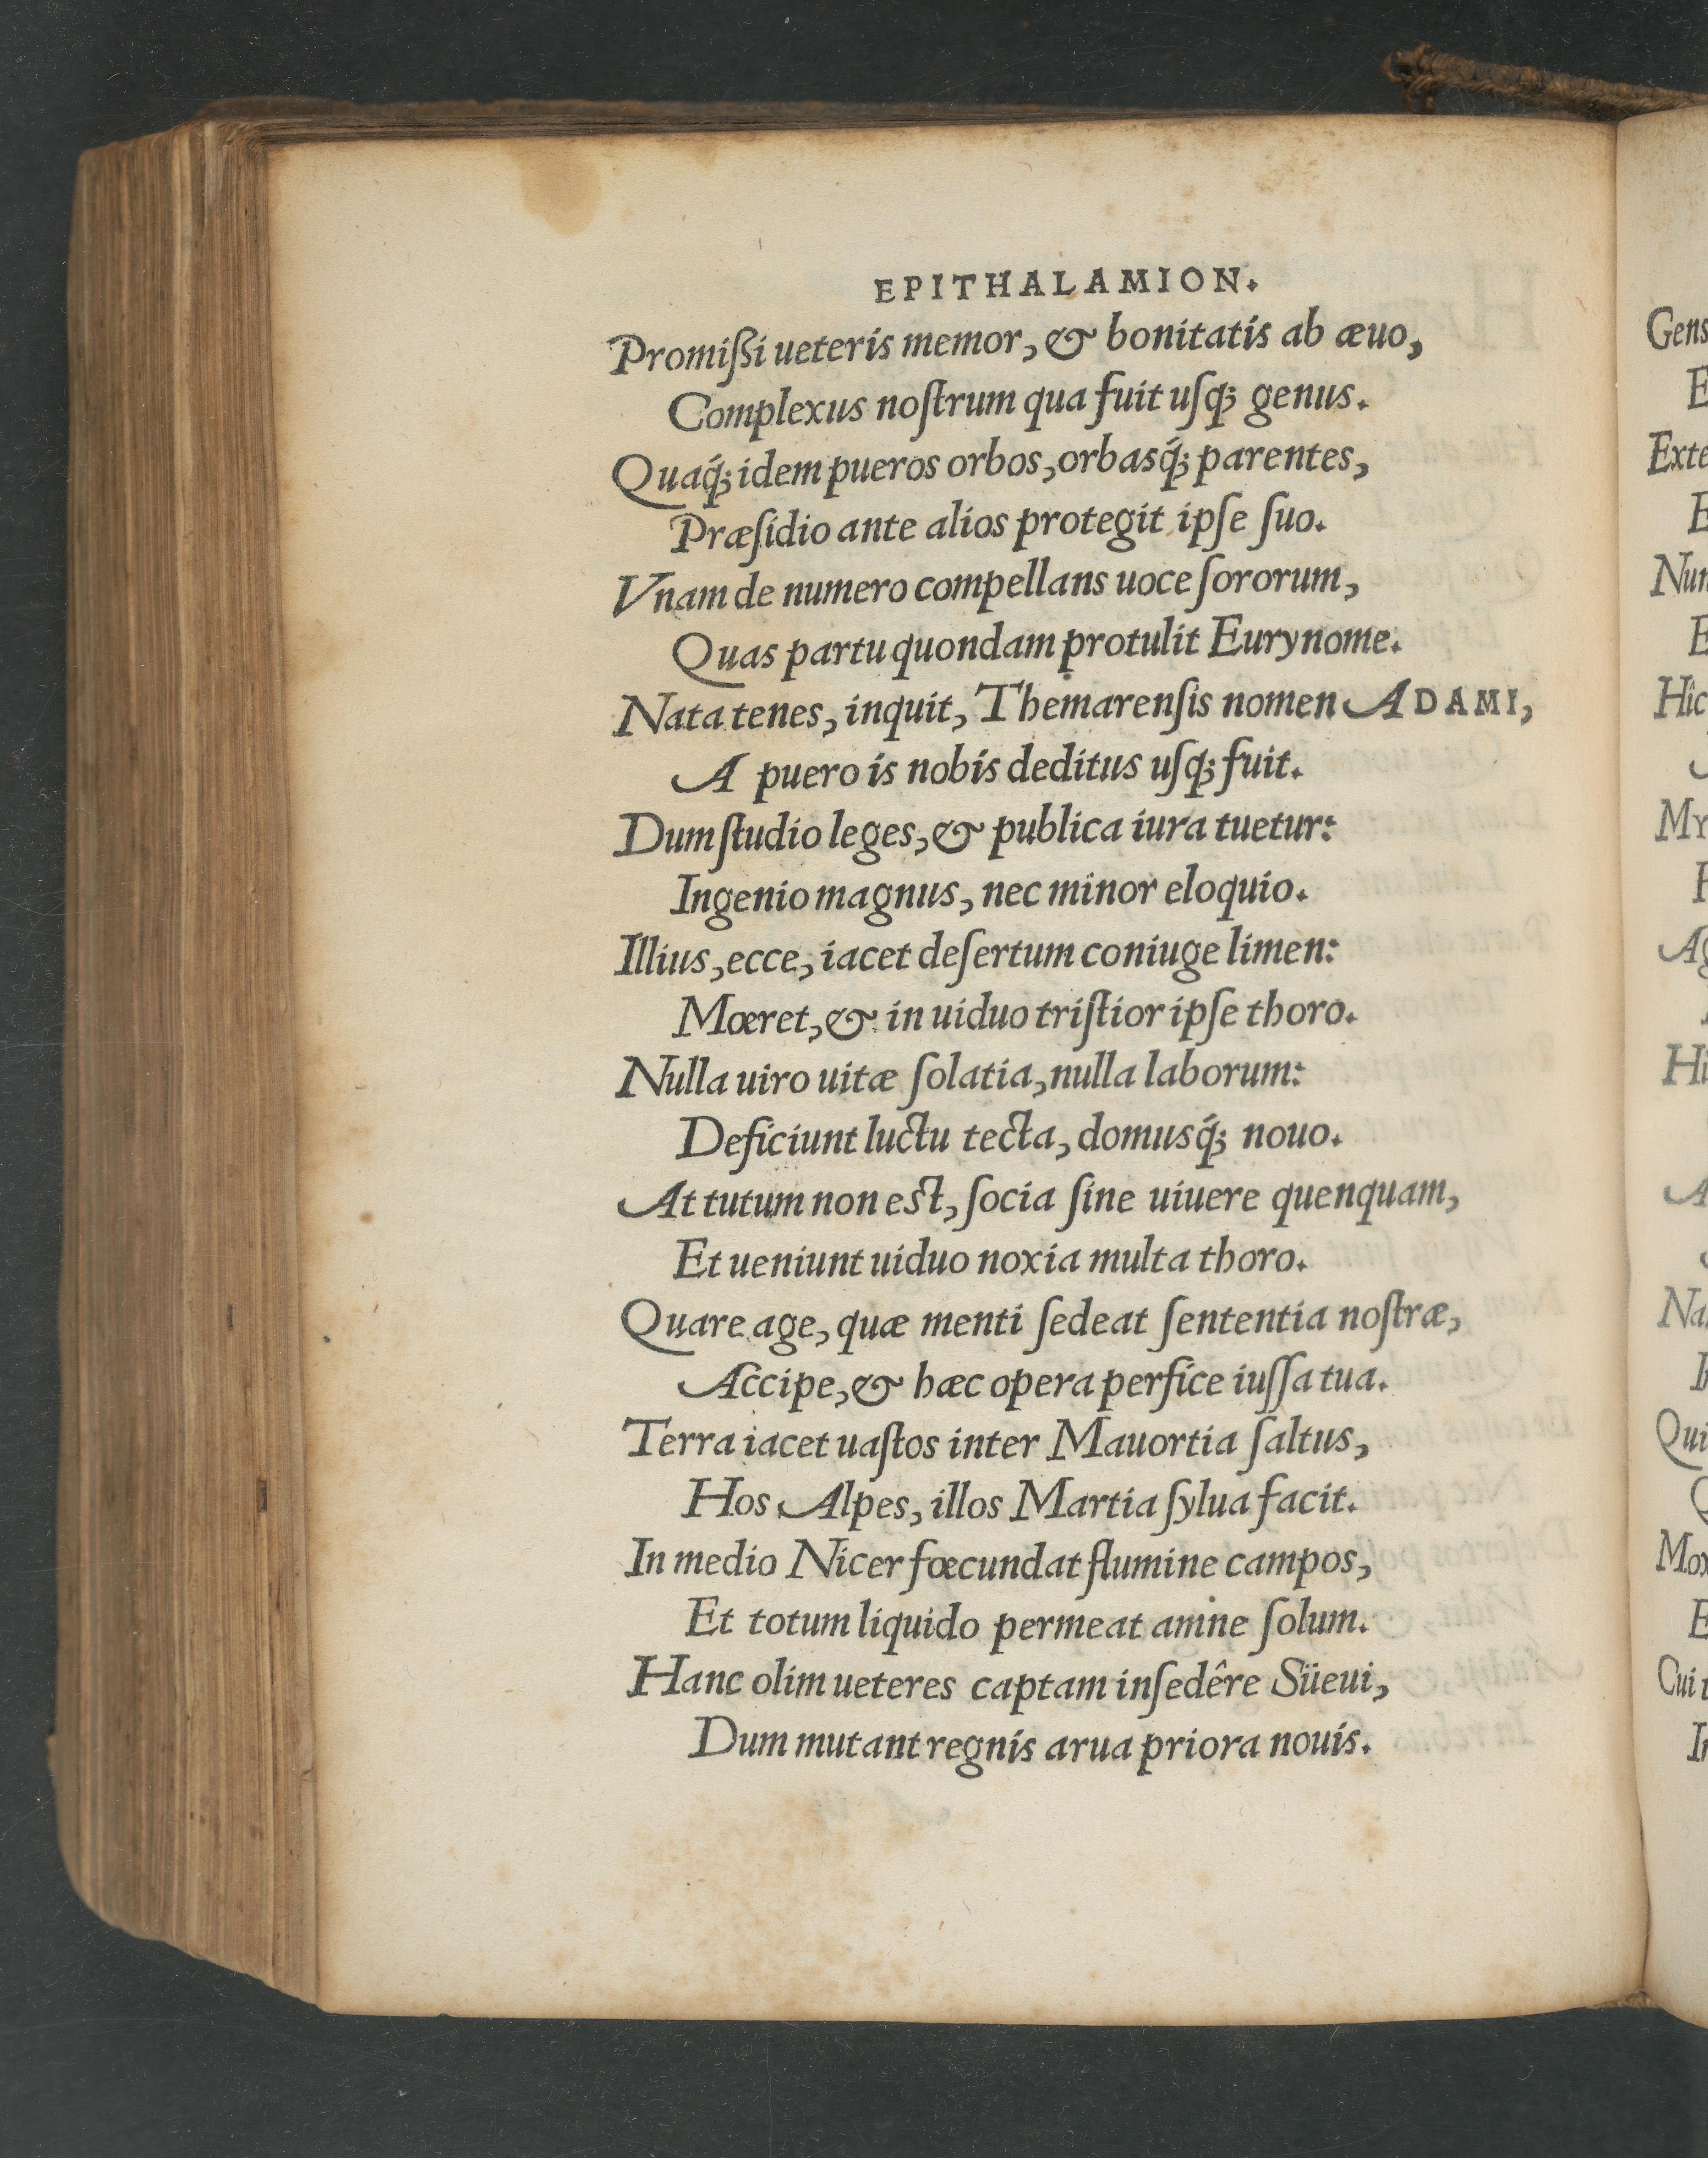 EPITHALAMION.
Promißi ueteris memor, & bonitatis ab æuo,
Complexus noſtrum qua fuit uſq; genus.
Quaq́; idem pueros orbos, orbasq́; parentes,
Præſidio ante alios protegit ipſe ſuo.
Vnam de numero compellans uoce ſororum,
Quas partu quondam protulit Eurynome.
Nata tenes, inquit, Themarenſis nomen ADAMI,
A puero is nobis deditus uſq; fuit.
Dum ſtudio leges, & publica iura tuetur:
Ingenio magnus, nec minor eloquio.
Illius, ecce, iacet deſertum coniuge limen:
Mœret, & in uiduo triſtior ipſe thoro.
Nulla uiro uitæ ſolatia, nulla laborum:
Deficiunt luctu tecta, domusq́; nouo.
At tutum non est, ſocia ſine uiuere quenquam,
Et ueniunt uiduo noxia multa thoro.
Quare age, quæ menti ſedeat ſententia noſtræ,
Accipe, & hæc opera perfice iuſſa tua.
Terra iacet uaſtos inter Mauortia ſaltus,
Hos Alpes, illos Martia ſylua facit.
In medio Nicer fœcundat flumine campos,
Et totum liquido permeat amne ſolum.
Hanc olim ueteres captam inſedêre Süeui,
Dum mutant regnis arua priora nouis.
Gens
Exte
Hic